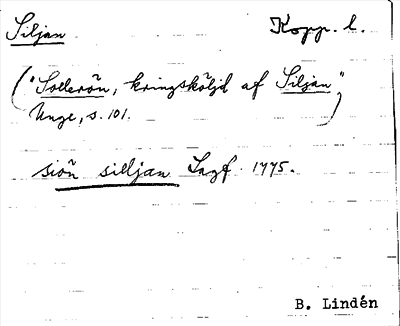 Siljan Kopp. l.
("Sollerön, kringsköljd af Siljan",
Unge, s. 101.)
siön silljan Lagf. 1775.
B. Lindén